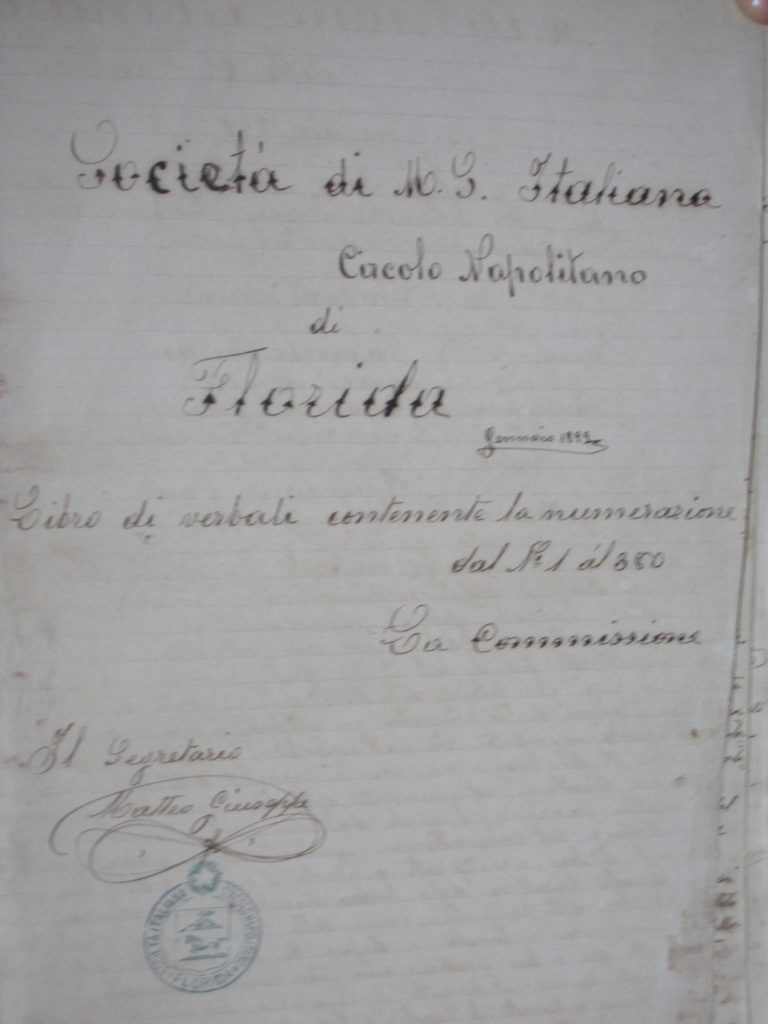 Società di M. S. Italiana
Cacolo Napolitano
di
Florida
Gennaio
Libro di verbali contenente la numerazione
dal Nº 1 ál 380
La Commissione
Il Segretario
Matteo Giuseppe